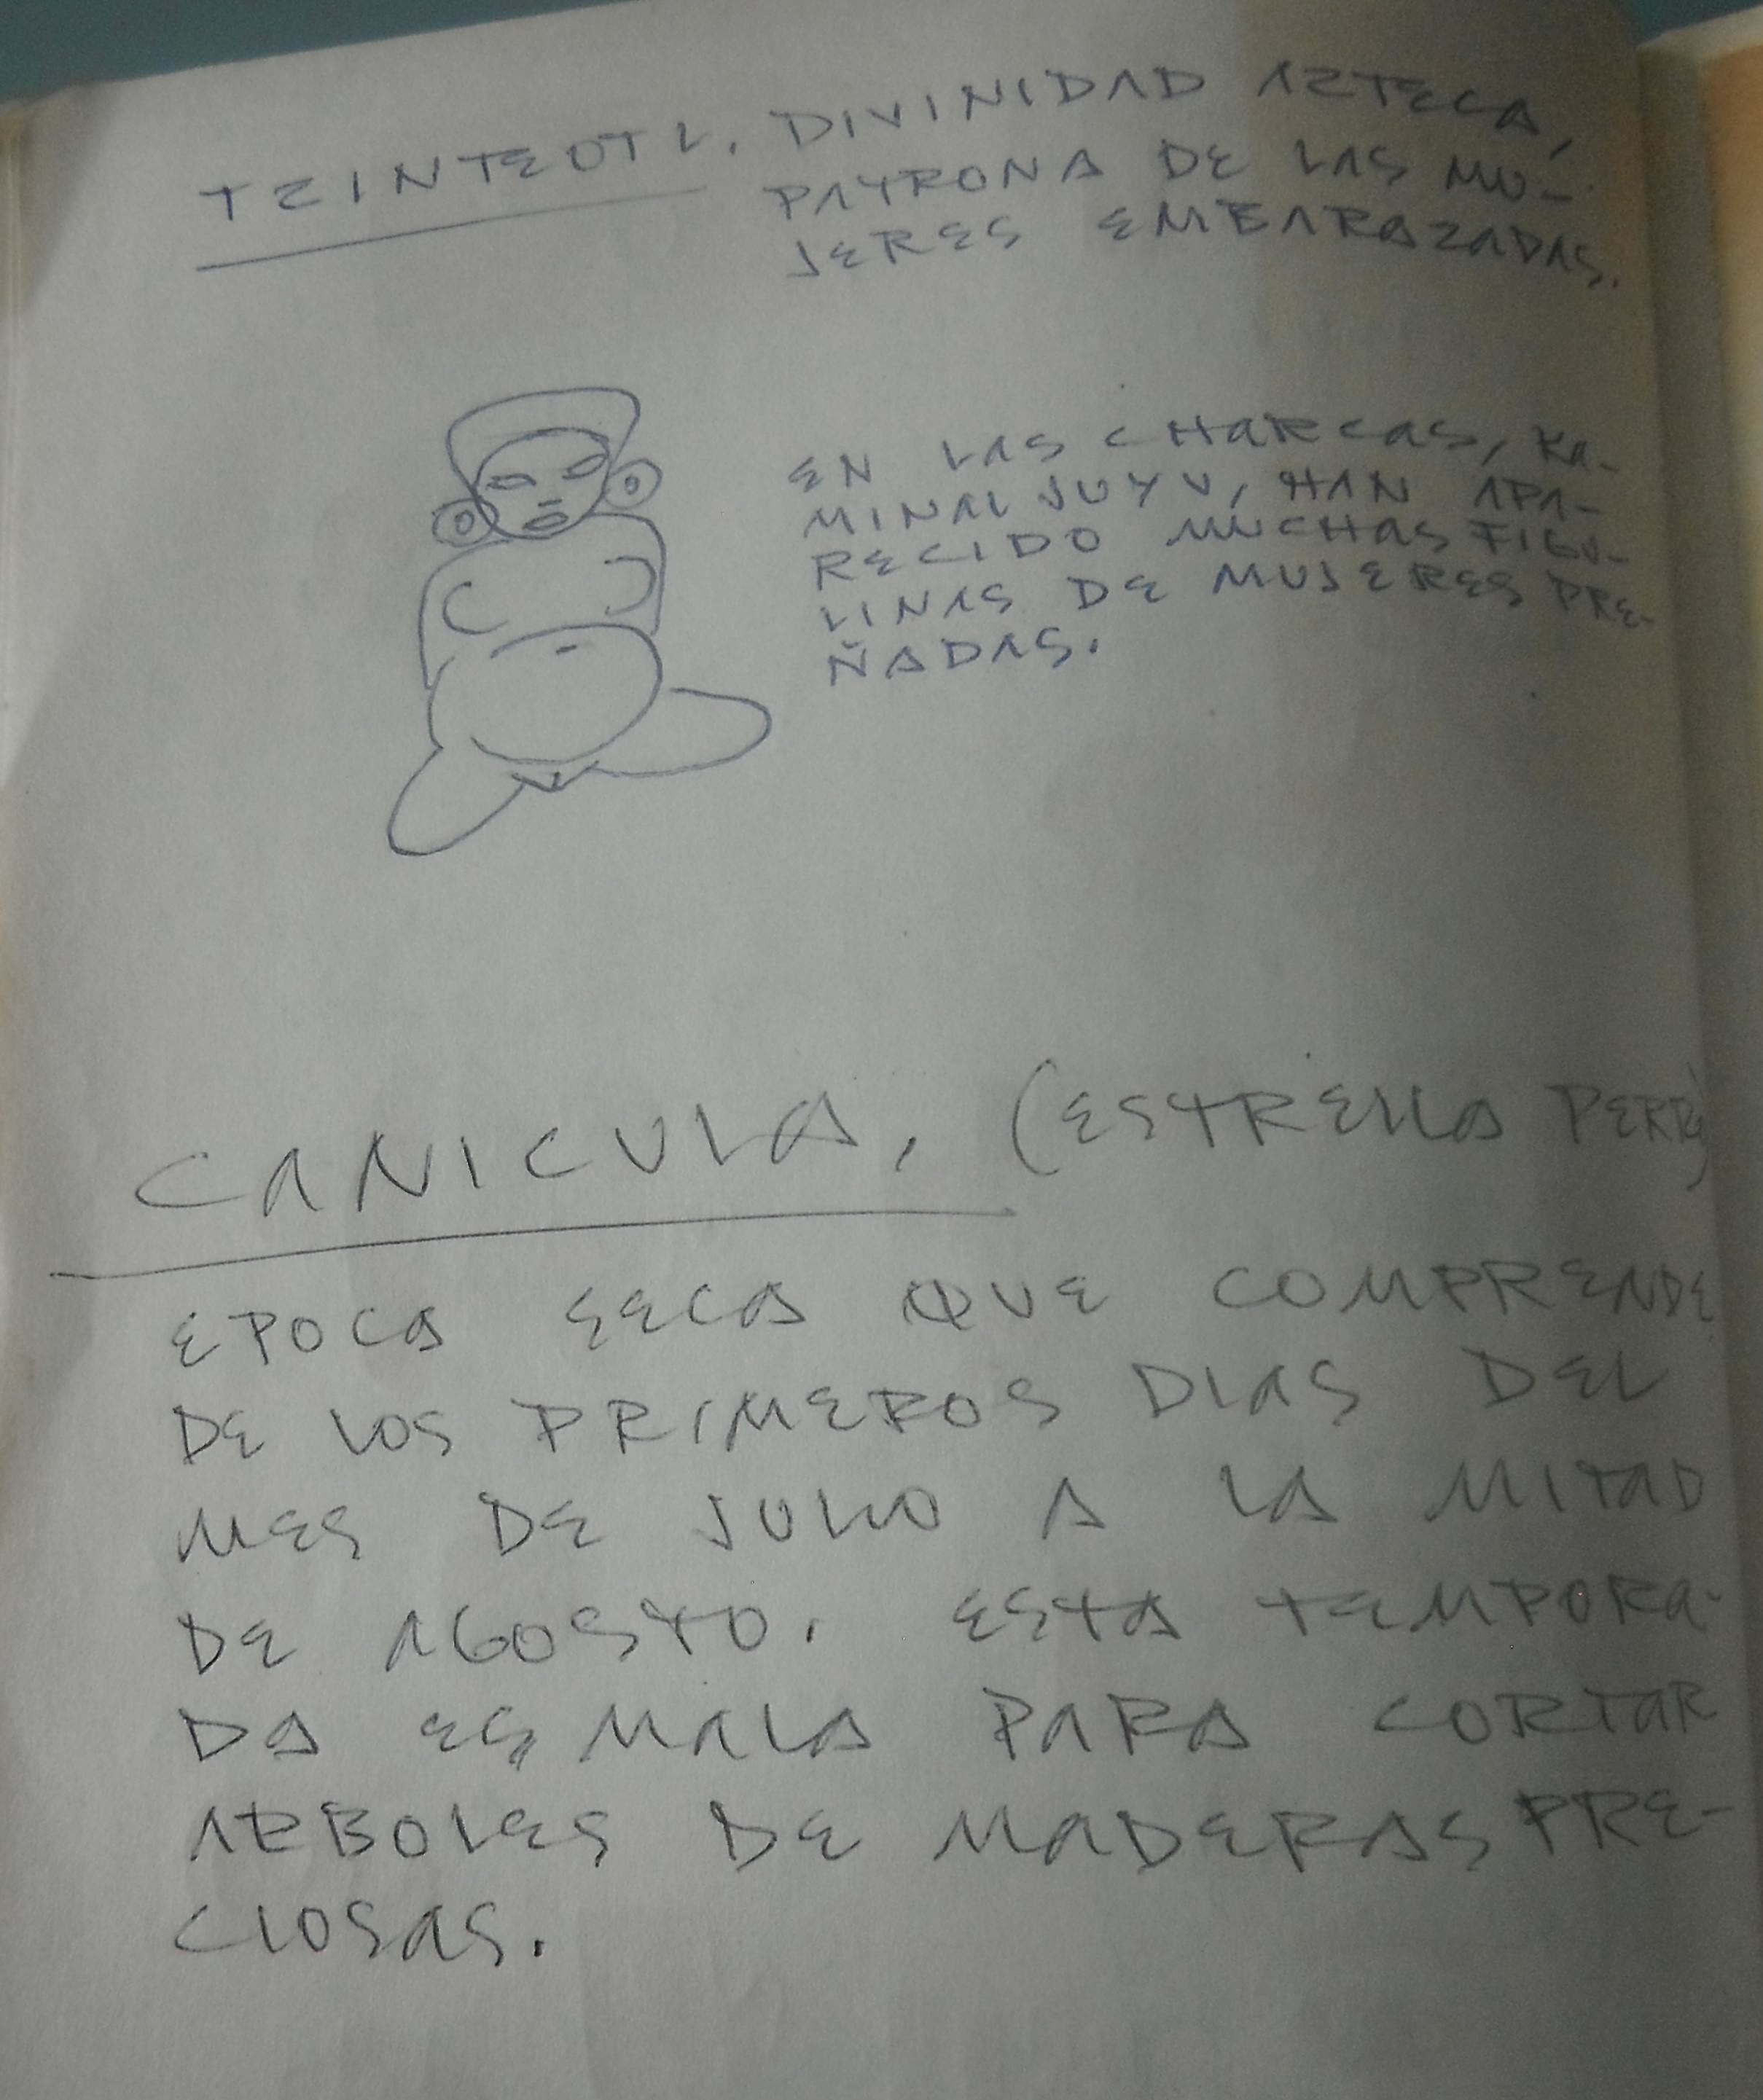 TZINTEOTL. DIVINIDAD AZTECA,
PATRONA DE LAS MU-
JERES EMBARAZADAS.
EN LAS CHARCAS, KA-
MINAL JUYU, HAN APA-
RECIDO MUCHAS FIGU-
LINAS DE MUJERES PRE-
ÑADAS.
CANICULA, (ESTRELLA PERRO)
EPOCA SECA QUE COMPRENDE
DE LOS PRIMEROS DIAS DEL
MES DE JULIO A LA MITAD
DE AGOSTO. ESTA TEMPORA-
DA ES MALA PARA CORTAR
ARBOLES DE MADERAS PRE-
CIOSAS.